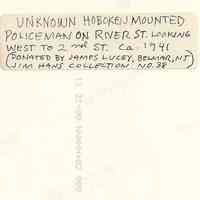 UNKNOWN HOBOKEN MOUNTED
POLICEMAN ON RIVER ST. LOOKING
WEST TO 2nd ST. Ca. 1941
(DONATED BY JAMES LUCEY, BELMAR, NJ)
JIM HANS COLLECTION NO. 38